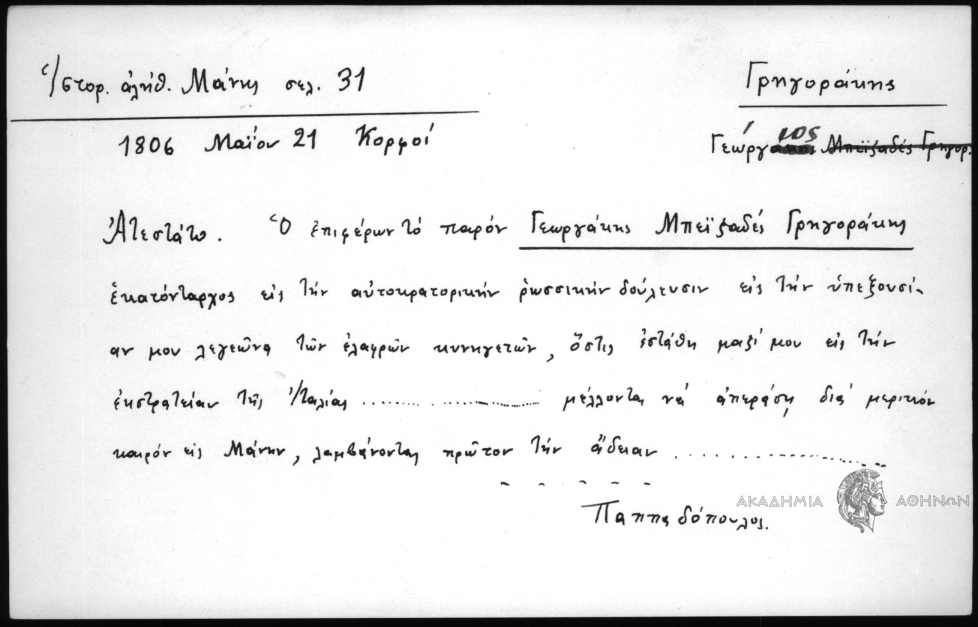 Ἱστορ. ἀλήθ. Μάνης σελ. 31
Γρηγοράκης
1806 Μαΐου 21 Κορφοί
Γεώργιος Μπεϊζαδές Γρηγορ.
Ἀτεστάτο. Ὁ ἐπιφέρων τό παρόν Γεωργάκης Μπεϊζαδές Γρηγοράκης
ἑκατόνταρχος εἰς τήν αὐτοκρατορικήν ῥωσσικήν δούλευσιν εἰς τήν ὑπεξουσί-
αν μου λεγεῶνα τῶν ἐλαφρῶν κυνηγετῶν, ὅστις ἐστάθη μαζί μου εἰς τήν
ἐκστρατείαν τῆς Ἰταλίας .................. μέλλοντας νά ἀπεράσῃ διά μερικόν
καιρόν εἰς Μάνην, λαμβάνοντας πρῶτον τήν ἄδειαν ..................
- - - - -
Παππαδόπουλος.
ΑΚΑΔΗΜΙΑ ΑΘΗΝΩΝ